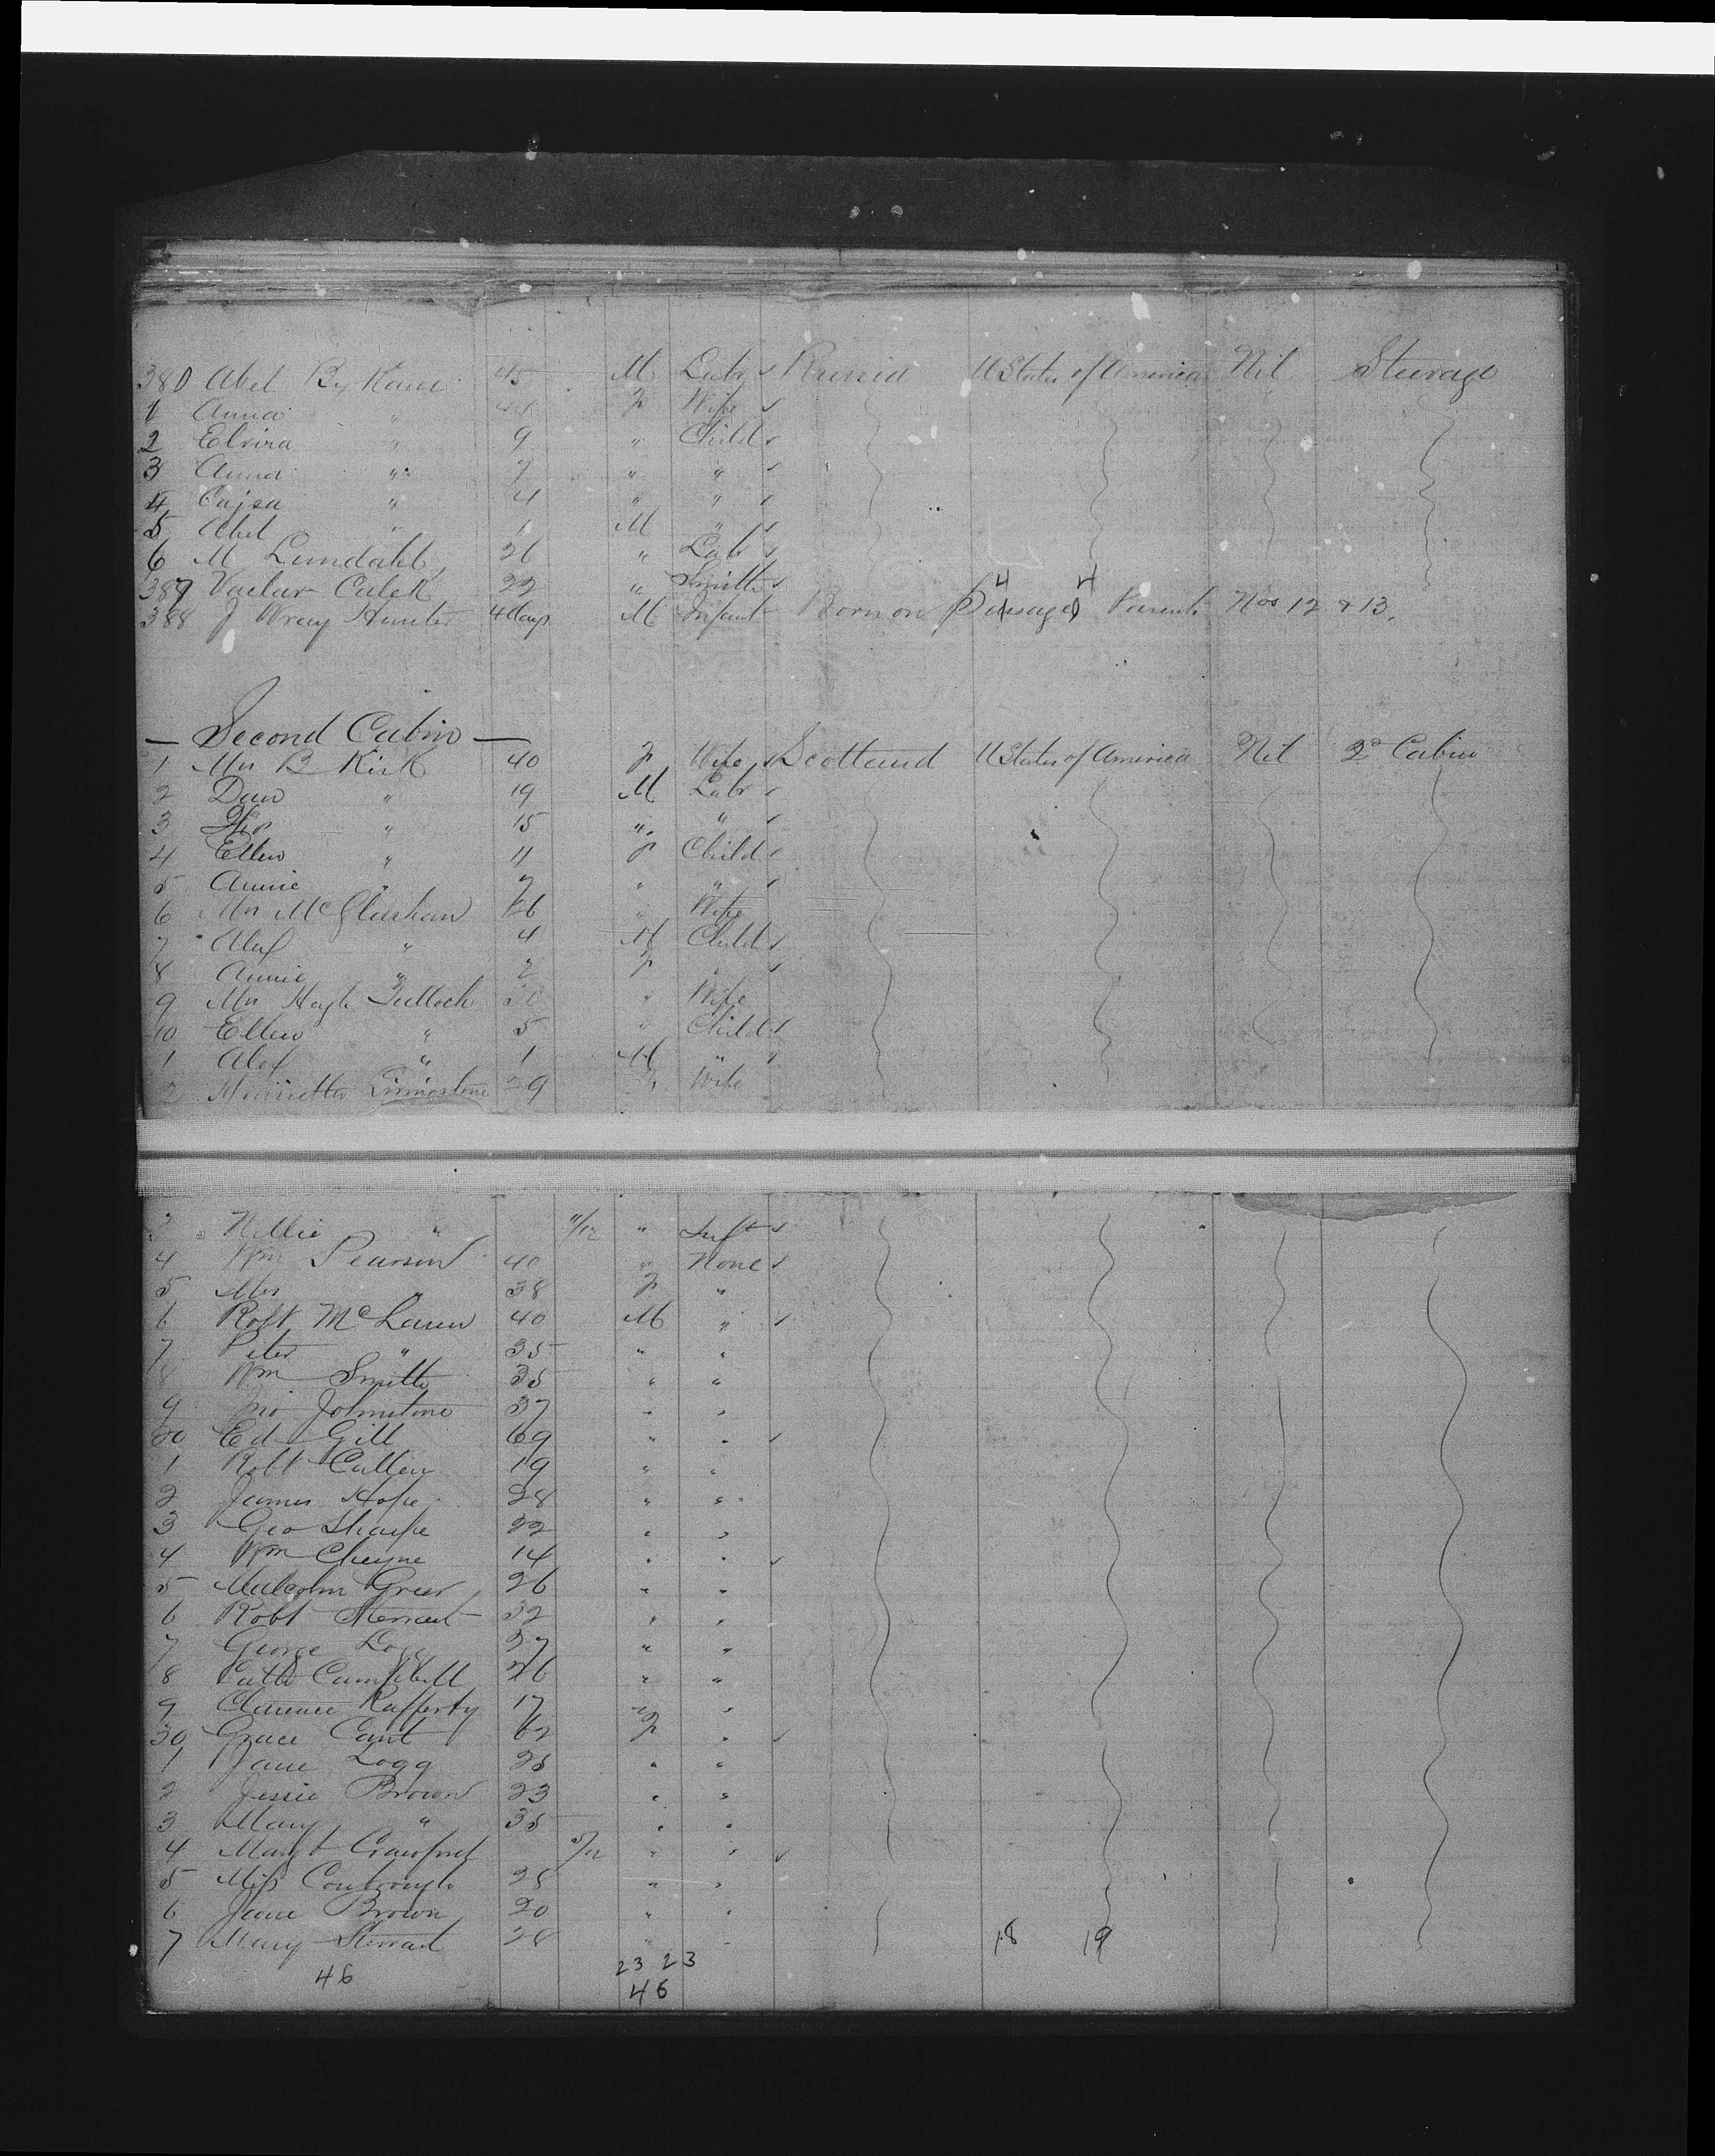 380 Abel By Kaue 45 M Labr ✓ Russia U States of America Nil Steerage
1 Anna " 44 F Wife ✓
2 Elvira " 9 " Child ✓
3 Anna " 7 " " ✓
4 Cajsa " 4 " " ✓
5 Abel " 1 M " ✓
6 M Lundahl 26 " Labr ✓
387 Vaclav Calek 22 " Smith ✓ 4 4
388 J Wray Hunter 4 days M Infant Born on Passage Parents Nos 12 & 13.
— Second Cabin —
1 Mrs B Kirk 40 F Wife ✓ Scotland U States of America Nil 2d Cabin
2 Dan " 19 M Labr ✓
3 " 15 " " ✓
4 Ellen " 11 F Child ✓
5 Annie " 7 " " ✓
6 Mrs McGlashan 26 " Wife
7 Alex " 4 M Child ✓
8 Annie " 2 F " ✓
9 Mrs Tulloch 30 " Wife
10 Ellen " 5 " Child ✓
1 Alex " 1 M " "
2 Henrietta Livingstone 29 F Wife
3 Nellie " 11/12 " Inft ✓
4 Wm Pearson 40 " None ✓
5 Mrs " 38 F "
6 Robt McLaren 40 M " ✓
7 Peter " 35 " "
8 Wm Smith 35 " "
9 Jno Johnstone 37 " "
20 Ed Gill 69 " " ✓
1 Robt Cullen 19 " "
2 James Hope 28 " "
3 Geo Sharpe 22 " "
4 Wm Cheyne 14 " " ✓
5 Malcolm Greer 26 " "
6 Robt Sterrart 32 " "
7 George Logg 27 " "
8 Campbell 26 " "
9 Clarence Rafferty 17 " "
30 Grace Cant 62 F " ✓
1 Jane Logg 25 " "
2 Jessie Brown 23 " "
3 Mary " 35 " "
4 Margt Crawford 5/12 " " ✓
5 Miss Coubrough 28 " "
6 Jane Brown 20 " "
7 Mary Sterrart 28 " " 18 19
46 23 23
46